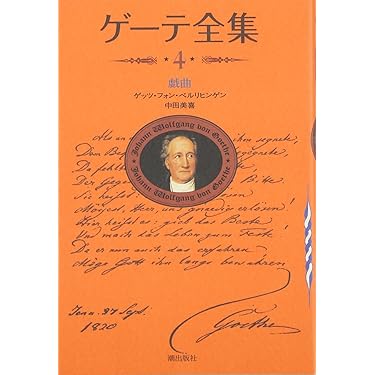 ゲーテ全集
4
戯曲
ゲッツ・フォン・ベルリヒンゲン
中田美喜
Johann Wolfgang von Goethe
Johann Wolfgang von Goethe
Als an
ihm segnete,
Dem
begegnete,
Da fehlte
Der Gegen
Bitte
Sie heisst
Möget, Herr, uns gnaedig erlösen!
Hier heisst es: gieb das Beste
Und mach das Leben zum Feste!
Da er nun auch das erfahren
Möge Gott ihn lange bewahren
Jena 27 Sept.
1820
Goethe
潮出版社